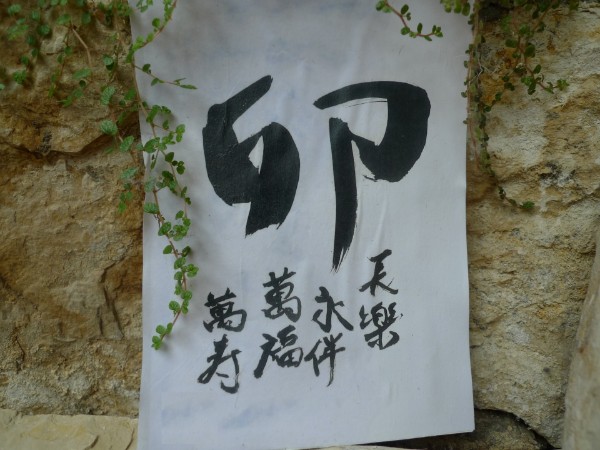 卯
长樂
永伴
萬福
萬寿